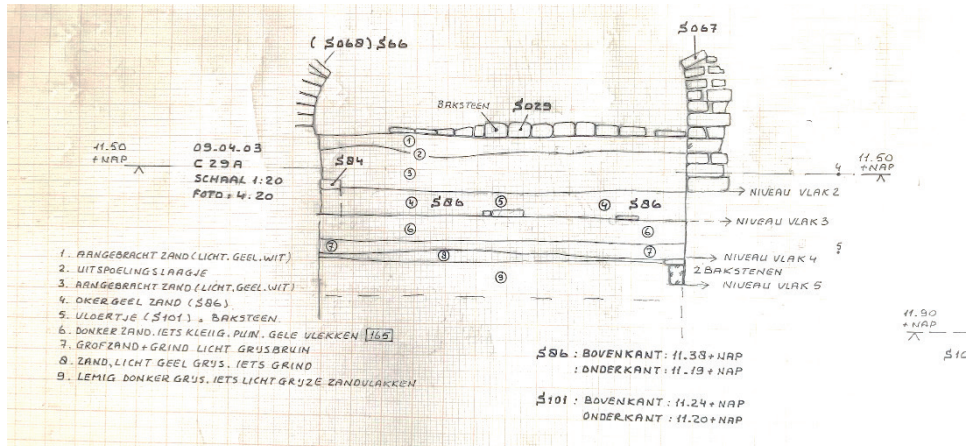 (S068) S66
S067
BAKSTEEN S029
11.50
+NAP
09.04.03
C 29A
SCHAAL 1:20
FOTO: 4:20
S84
1
2
3
4 S86 5 4 S86
6 6
7 7
8
9
4
11.50
+NAP
NIVEAU VLAK 2
NIVEAU VLAK 3
5
NIVEAU VLAK 4
2 BAKSTENEN
NIVEAU VLAK 5
1. AANGEBRACHT ZAND (LICHT. GEEL. WIT)
2. UITSPOELINGSLAAGJE
3. AANGEBRACHT ZAND (LICHT. GEEL. WIT)
4. OKERGEEL ZAND (S86)
5. VLOERTJE (S101). BAKSTEEN.
6. DONKER ZAND. IETS KLEIIG. PUIN. GELE VLEKKEN 165
7. GROFZAND + GRIND LICHT GRIJSBRUIN
8. ZAND, LICHT GEEL GRIJS. IETS GRIND
9. LEMIG DONKER GRIJS. IETS LICHT GRIJZE ZANDVLAKKEN
S86 : BOVENKANT : 11.38 + NAP
: ONDERKANT : 11.19 + NAP
S101 : BOVENKANT : 11.24 + NAP
ONDERKANT : 11.20 + NAP
11.90
+NAP
S10